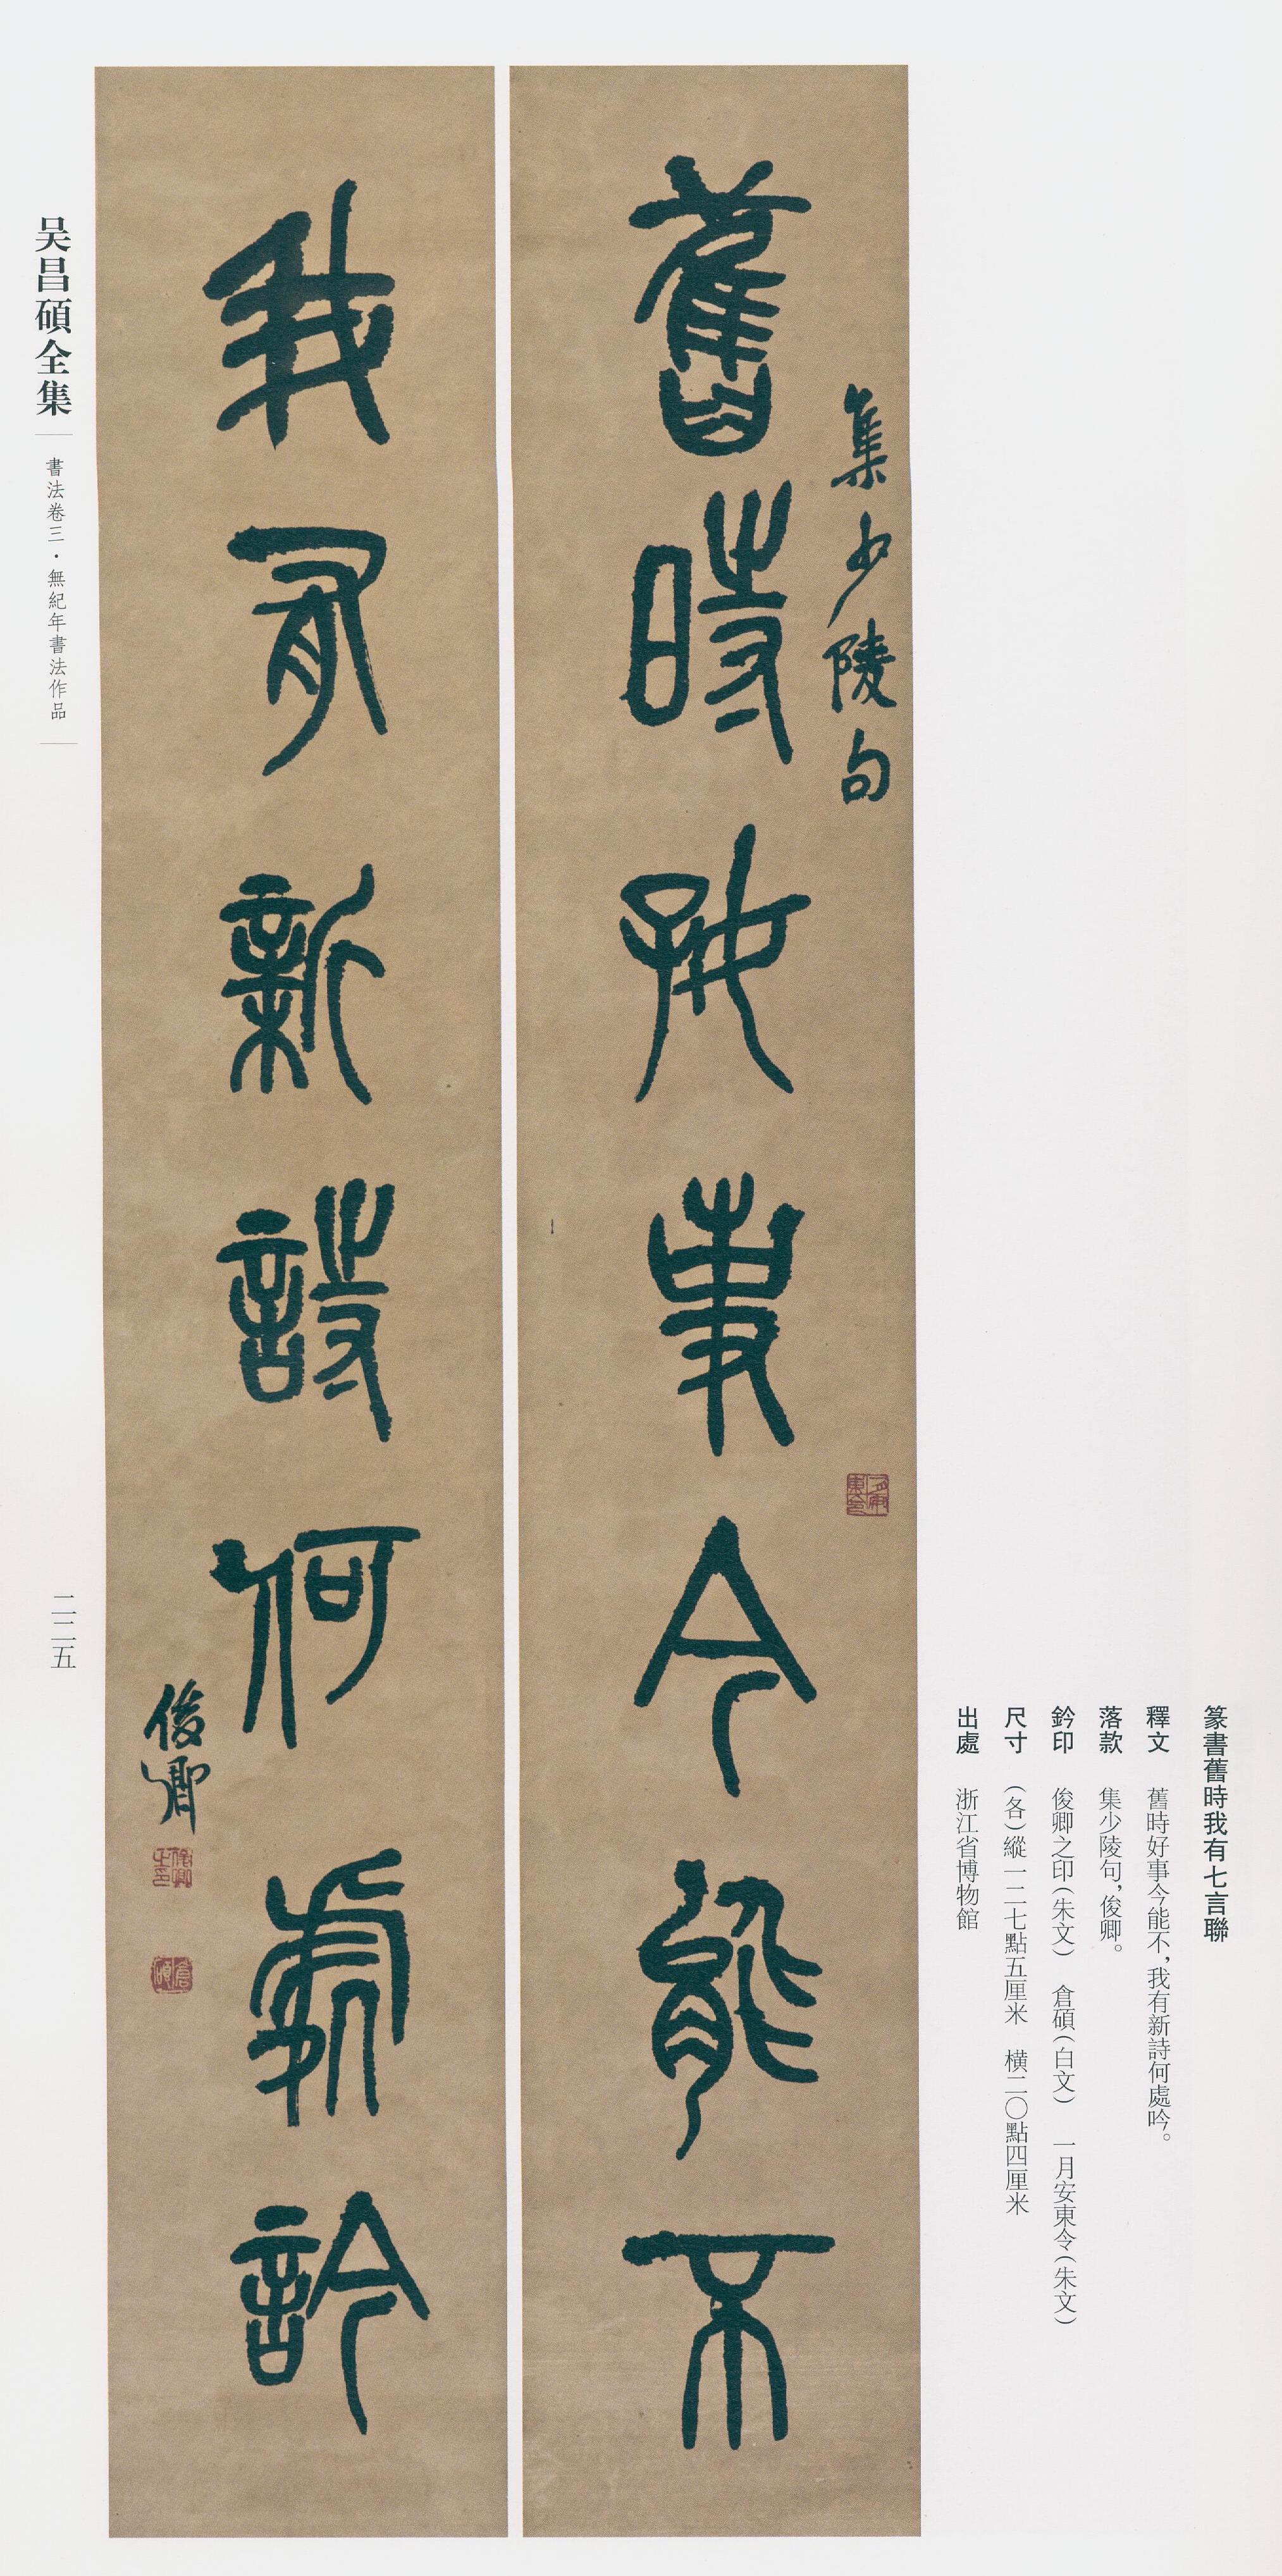 篆書舊時我有七言聯
釋文　舊時好事今能不，我有新詩何處吟。
落款　集少陵句，俊卿。
鈐印　俊卿之印（朱文）　倉碩（白文）　一月安東令（朱文）
尺寸　（各）縱一二七點五厘米　橫二〇點四厘米
出處　浙江省博物館
集少陵句
舊時好事今能不
一月安東令
我有新詩何處吟
俊卿
俊卿之印
倉碩
吴昌碩全集
書法卷三·無紀年書法作品
二二五